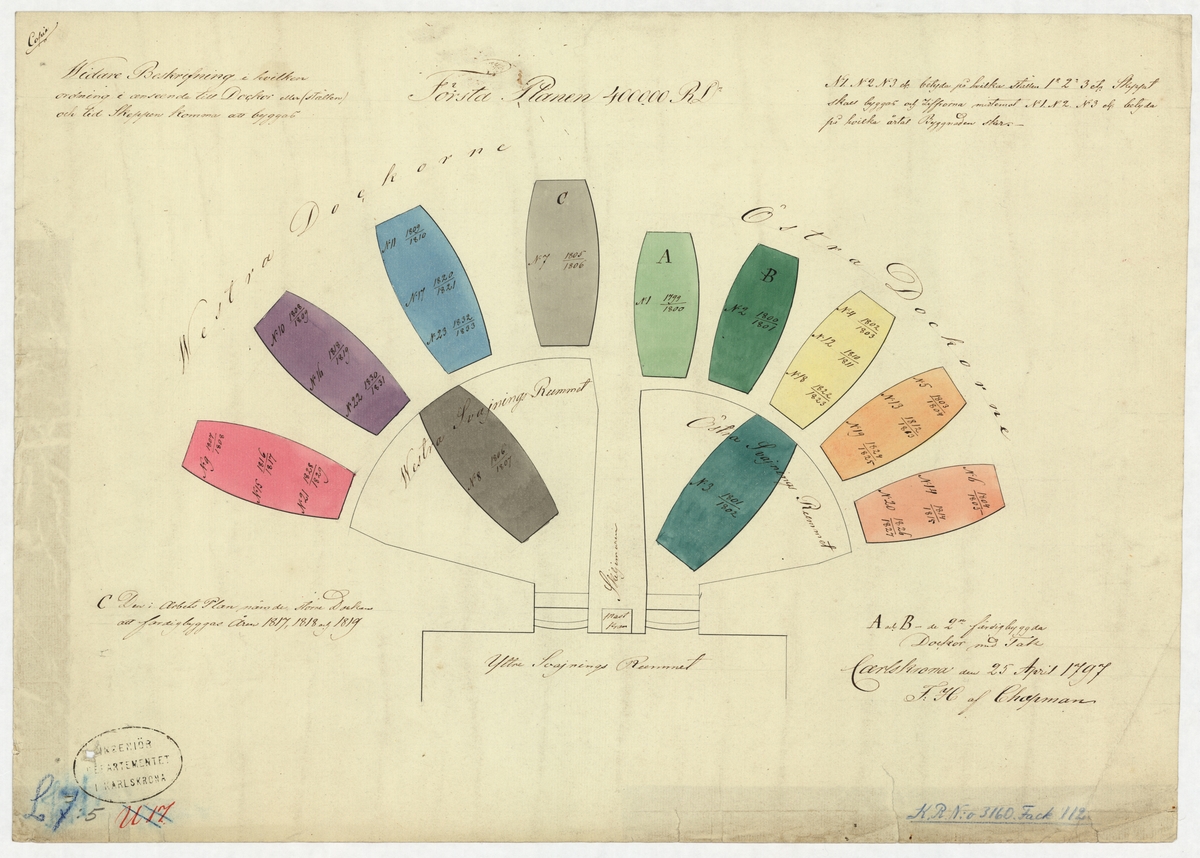 Copia
Widare Beskrifning i hvilken
ordning i anseende till Dockor eller (ställen)
och tid Skeppen komma att byggas
Första Planen 400000 RD
N1. N2 N3 etc betyda på hvilka ställen 1a 2a 3 etc Skeppet
skall byggas och Zifferna inutemot N1. N2. N3 etc betyda
på hvilka årtal Byggnaden sker.
Westra Dockorne
Östra Dockorne
N9 1807/1808
N15 1816/1817
N21 1828/1829
N10 1808/1809
N16 1818/1819
N22 1830/1831
N11 1809/1810
N17 1820/1821
N23 1832/1833
C
N7 1805/1806
A
N1 1799/1800
B
N2 1800/1801
N4 1802/1803
N12 1810/1811
N18 1822/1823
N5 1803/1804
N13 1812/1813
N19 1824/1825
N6 1804/1805
N14 1814/1815
N20 1826/1827
Westra Svajnings Rummet
N8 1806/1807
Östra Svajnings Rummet
N3 1801/1802
Skiljemuren
Yttre Svajnings Rummet
C Den i Arbets Plan nämde större Dockan
att färdigbyggas åren 1817, 1818 och 1819
A och B – de 2ne färdigbyggda
Dockor med Tak
Carlskrona den 25 April 1797
F. H af Chapman
INGENIÖR
DEPARTEMENTET
I KARLSKRONA
U 17
K.R.N:o 3160. Fack 112.